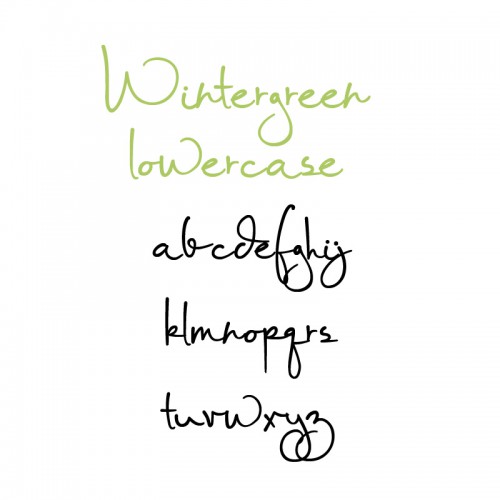 Wintergreen
lowercase
abcdefghij
klmnopqrs
tuvwxyz